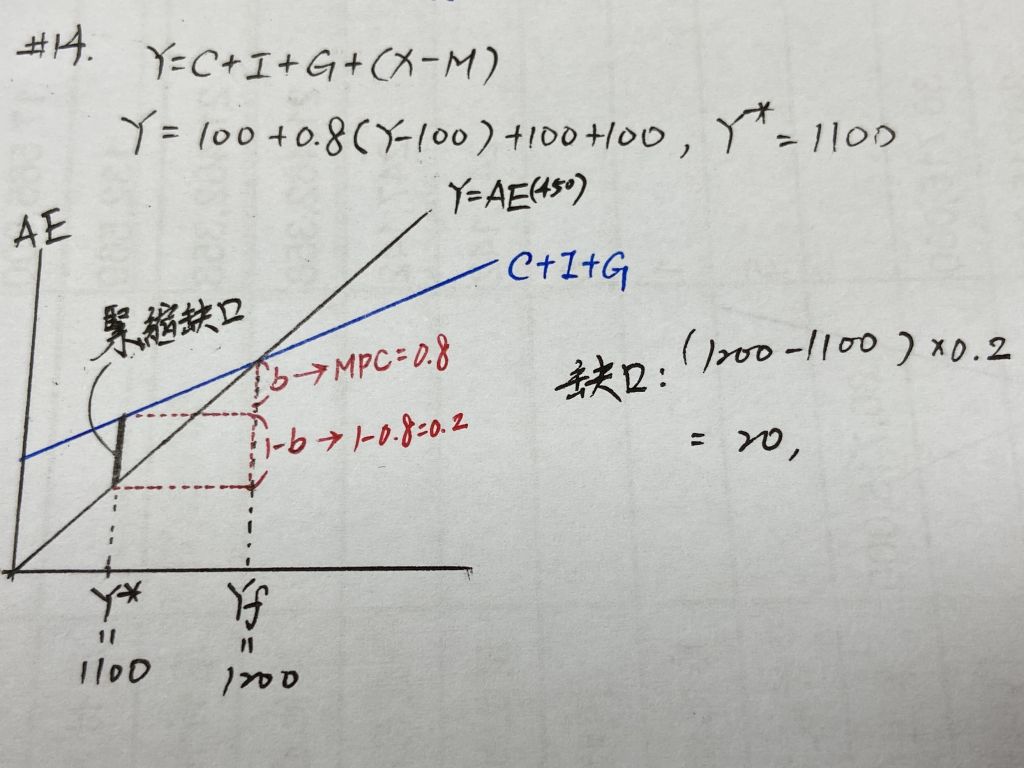 #14. Y=C+I+G+(X-M)
Y= 100+0.8(Y-100)+100+100, Y*=1100
Y=AE(45°)
AE
C+I+G
緊縮缺口
b→MPC=0.8
1-b→1-0.8=0.2
缺口: (1200-1100)×0.2
= 20,
Y* Yf
= =
1100 1200